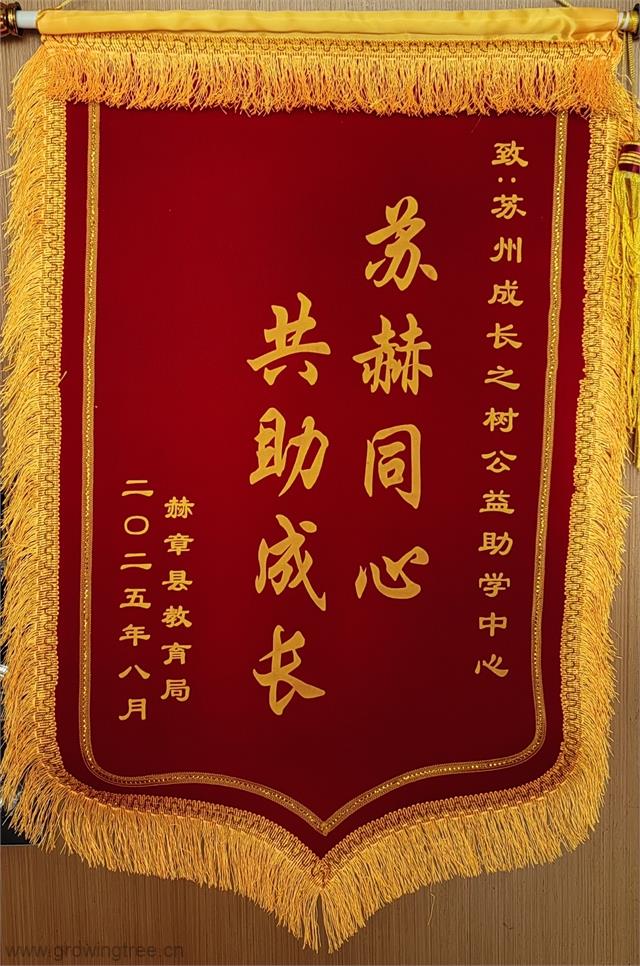 致:苏州成长之树公益助学中心
苏赫同心
共助成长
赫章县教育局
二〇二五年八月
www.growingtree.cn